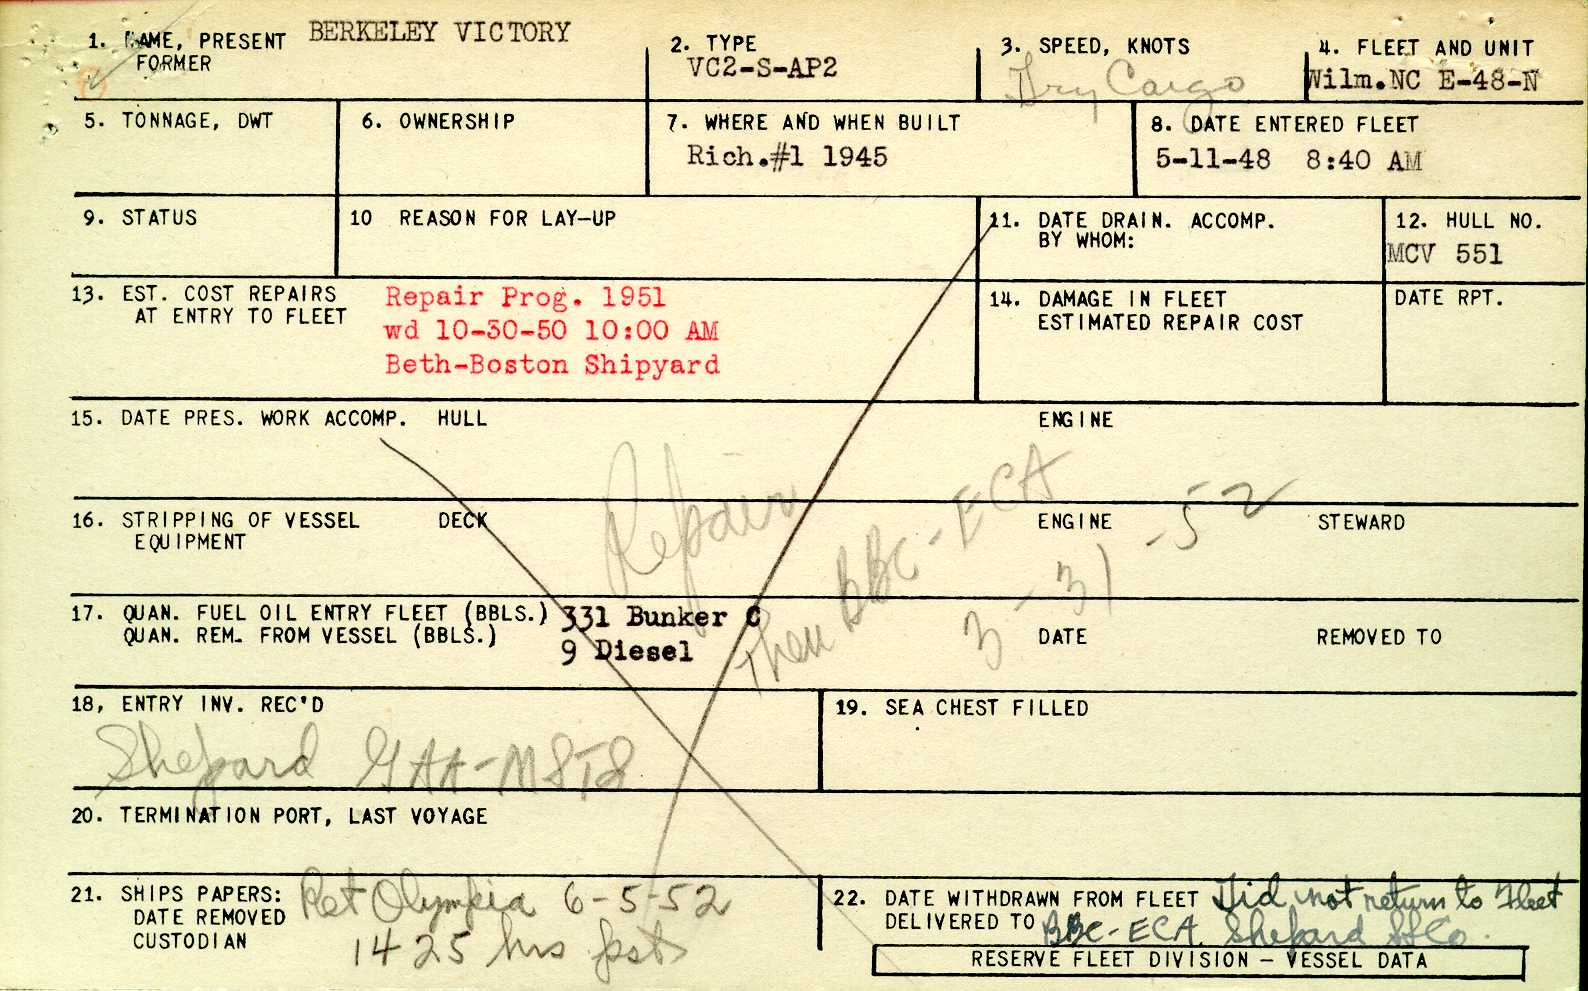 1. NAME, PRESENT BERKELEY VICTORY
FORMER
2. TYPE
VC2-S-AP2
3. SPEED, KNOTS
Dry Cargo
4. FLEET AND UNIT
Wilm.NC E-48-N
5. TONNAGE, DWT
6. OWNERSHIP
7. WHERE AND WHEN BUILT
Rich.#1 1945
8. DATE ENTERED FLEET
5-11-48 8:40 AM
9. STATUS
10 REASON FOR LAY-UP
11. DATE DRAIN. ACCOMP.
BY WHOM:
12. HULL NO.
MCV 551
13. EST. COST REPAIRS
AT ENTRY TO FLEET
Repair Prog. 1951
wd 10-30-50 10:00 AM
Beth-Boston Shipyard
14. DAMAGE IN FLEET
ESTIMATED REPAIR COST
DATE RPT.
15. DATE PRES. WORK ACCOMP. HULL ENGINE
Repair
Then BBC-ECA
3-31-52
16. STRIPPING OF VESSEL DECK ENGINE STEWARD
EQUIPMENT
17. QUAN. FUEL OIL ENTRY FLEET (BBLS.) 331 Bunker C
QUAN. REM. FROM VESSEL (BBLS.) 9 Diesel DATE REMOVED TO
18, ENTRY INV. REC'D
Shepard GAA-MSTS
19. SEA CHEST FILLED
20. TERMINATION PORT, LAST VOYAGE
21. SHIPS PAPERS: Ret Olympia 6-5-52
DATE REMOVED
CUSTODIAN 1425 hrs pst
22. DATE WITHDRAWN FROM FLEET Did not return to Fleet
DELIVERED TO BBC-ECA. Shepard SS Co.
RESERVE FLEET DIVISION - VESSEL DATA